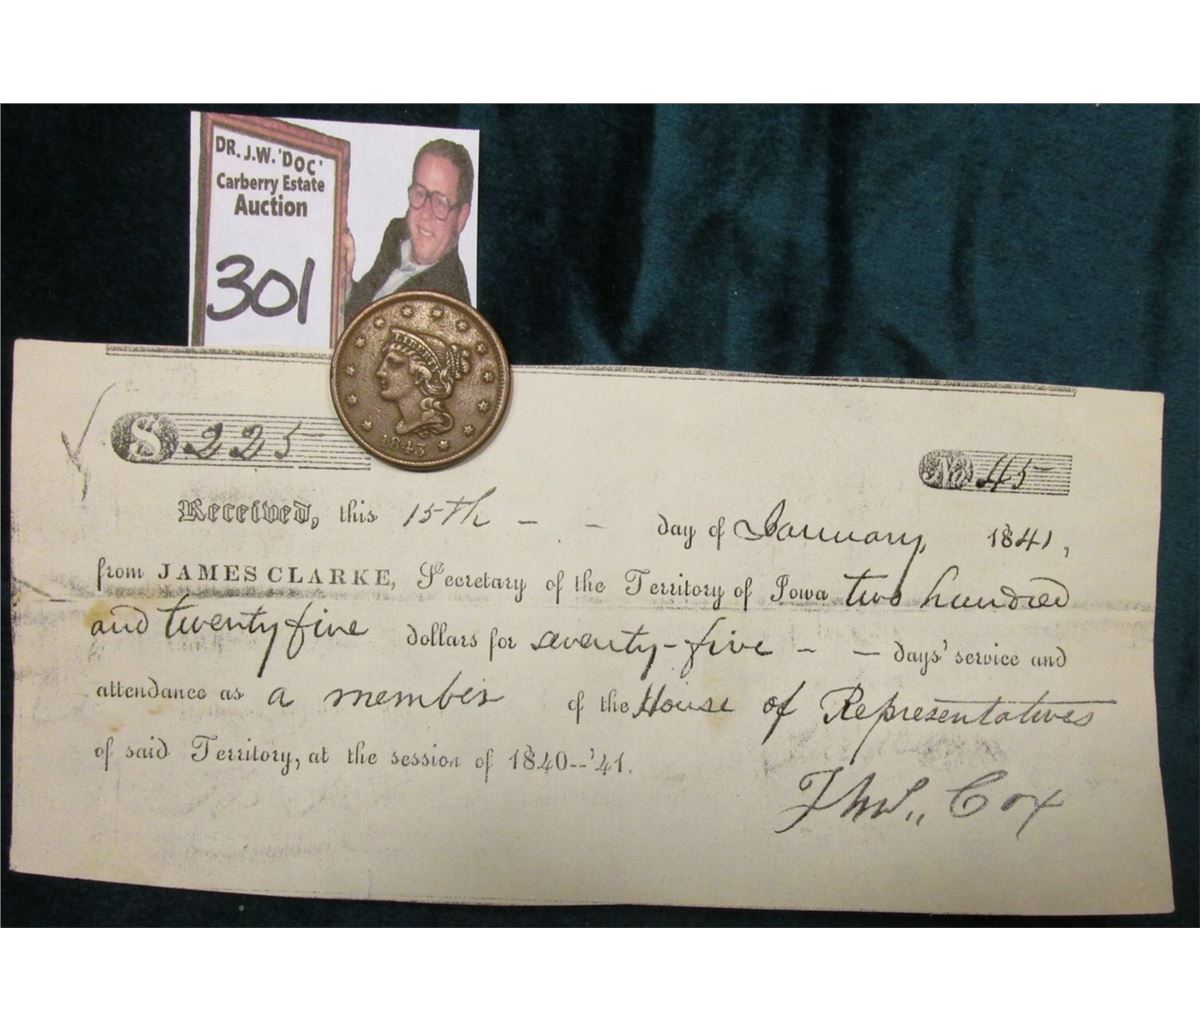 DR. J.W. 'DOC'
Carberry Estate
Auction
301
LIBERTY
1843
$ 225
No 45
Received, this 15th - - day of January, 1841,
from JAMES CLARKE, Secretary of the Territory of Iowa two hundred
and twenty five dollars for seventy-five - - days' service and
attendance as a member of the House of Representatives
of said Territory, at the session of 1840--'41.
Thos,, Cox